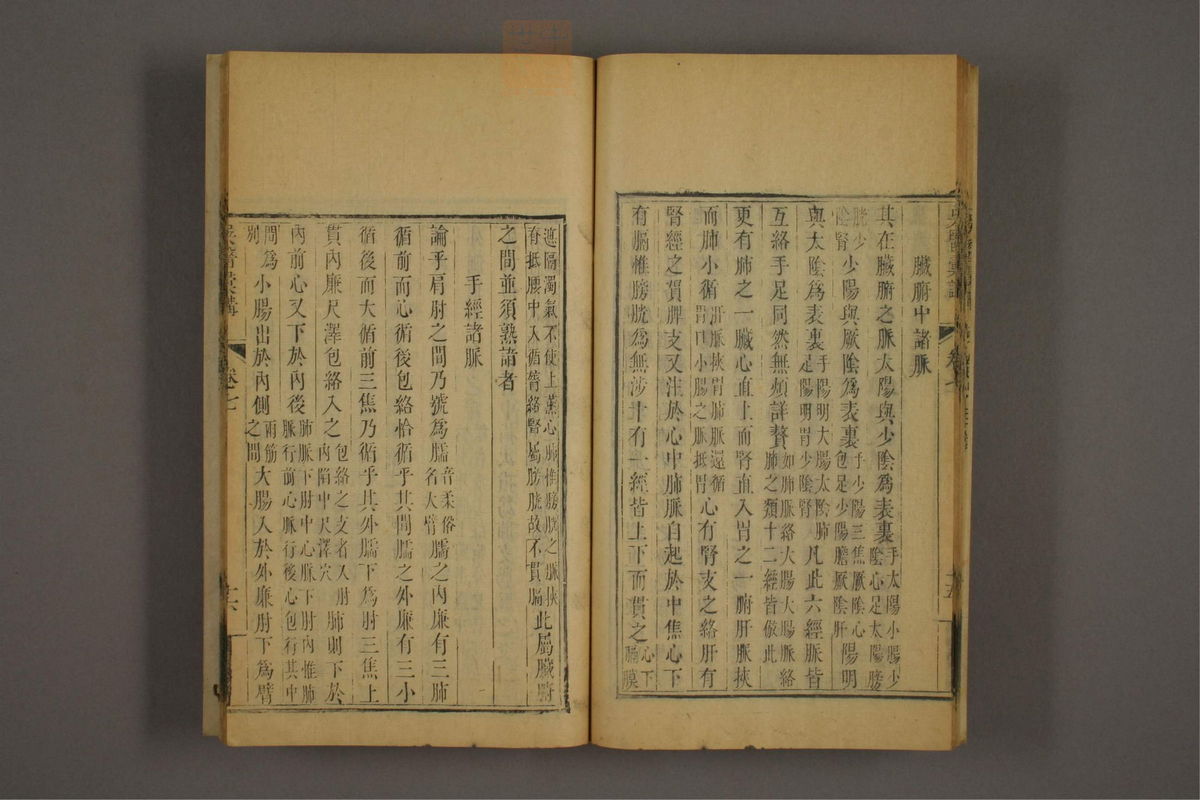 臟腑中諸脈
其在臟腑之脈太陽與少陰為表裏手太陽小腸少陰心足太陽膀
胱少陰腎少陽與厥陰為表裏手少陽三焦厥陰心包足少陽膽厥陰肝陽明
與太陰為表裏手陽明大腸太陰肺足陽明胃少陰腎凡此六經脈皆
互絡手足同然無煩詳贅如肺脈絡大腸大腸脈絡肺之類十二經皆倣此
更有肺之一臟心直上而腎直入胃之一腑肝脈挾
而肺小循肝脈挾胃肺脈還循胃口小腸之脈抵胃心有腎支之絡肝有
腎經之貫脾支又注於心中肺脈自起於中焦心下
有膈惟膀胱為無涉十有一經皆上下而貫之心下膈膜
遮隔濁氣不使上薰心臟惟膀胱之脈挾脊抵腰中入循膂絡腎屬膀胱故不貫膈此屬臟腑
之間並須熟諸者
手經諸脈
論乎肩肘之間乃號為臑音柔俗名大臂臑之內廉有三肺
循前而心循後包絡恰循乎其間臑之外廉有三小
循後而大循前三焦乃循乎其外臑下為肘三焦上
貫內廉尺澤包絡入之包絡之支者入肘內陷中尺澤穴肺則下於
內前心又下於內後肺脈下肘中心脈下肘內惟肺脈行前心脈行後心包行其中
間為小腸出於內側兩筋之間大腸入於外廉肘下為臂
卷七